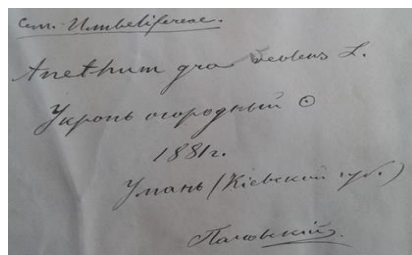 сем. Umbelifereae.
Anethum graveolens L.
Укропъ огородный ⊙
1881г.
Умань (Кіевской губ.)
Пачоскій.